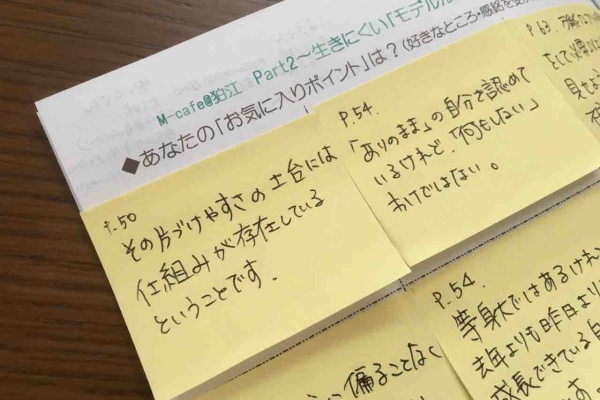 M-cafe@狛江 Part2～生きにくい「モデル
◆あなたの「お気に入りポイント」は？(好きなところ・感銘を受
P.50
その片づけやすさの土台には
仕組みが存在している
ということです。
P.54.
「ありのまま」の自分を認めて
いるけれど、「何もしない」
わけではない。
P.63.
見せる
P.54.
等身大ではあるけれ
去年よりも昨日より
成長できている自
偏ることなく